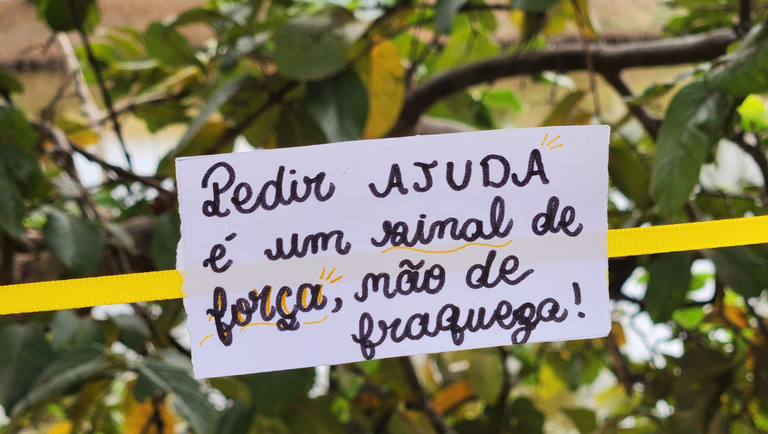 Pedir AJUDA
é um sinal de
força, não de
fraqueza!